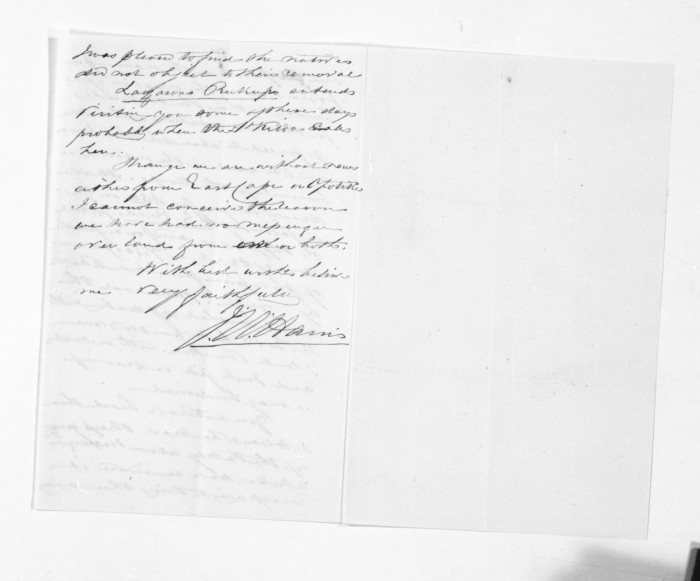 I was pleased to find the natives
did not object to their removal
Lazarus Rukupo intends
visiting you some of these days
probably when the St Kilda calls
here.
Strange we are without news
either from East Cape or Opotiki
I cannot conceive the reason
we have had no messenger
over land from one or both.
With best wishes believe
me very faithfully
Harris